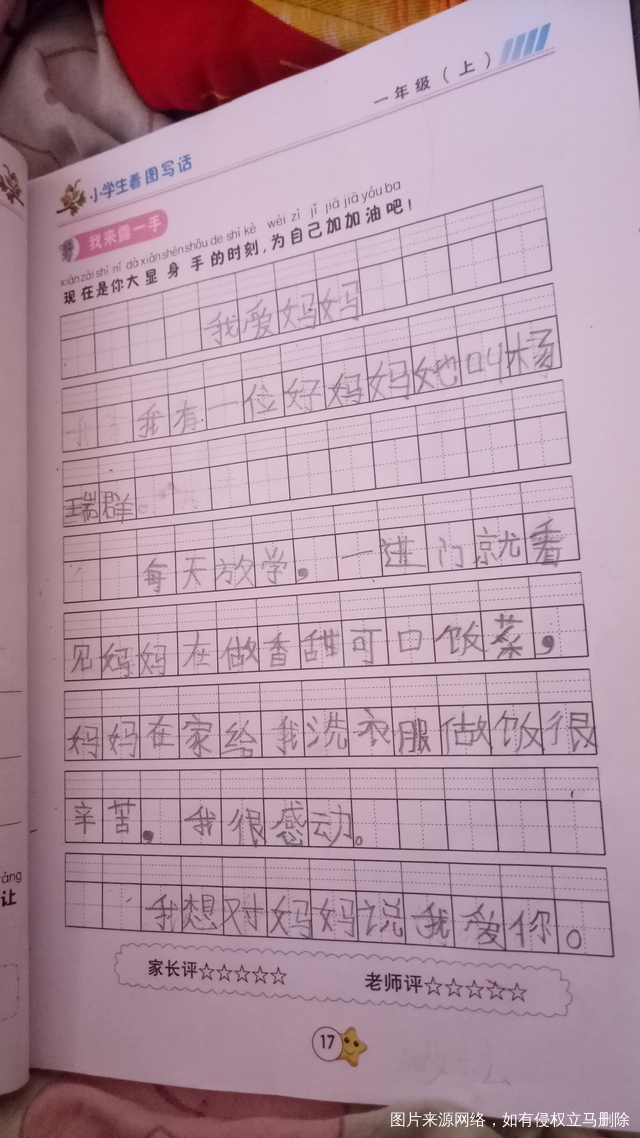 一年级（上）
小学生看图写话
我来露一手
xiàn zài shì nǐ dà xiǎn shēn shǒu de shí kè wèi zì jǐ jiā jiā yóu ba
现在是你大显身手的时刻，为自己加加油吧！
我爱妈妈
我有一位好妈妈她叫杨
瑞群。
每天放学，一进门就看
见妈妈在做香甜可口饭菜，
妈妈在家给我洗衣服做饭很
辛苦，我很感动。
我想对妈妈说我爱你。
ràng
让
家长评☆☆☆☆☆ 老师评☆☆☆☆☆
17
图片来源网络，如有侵权立马删除